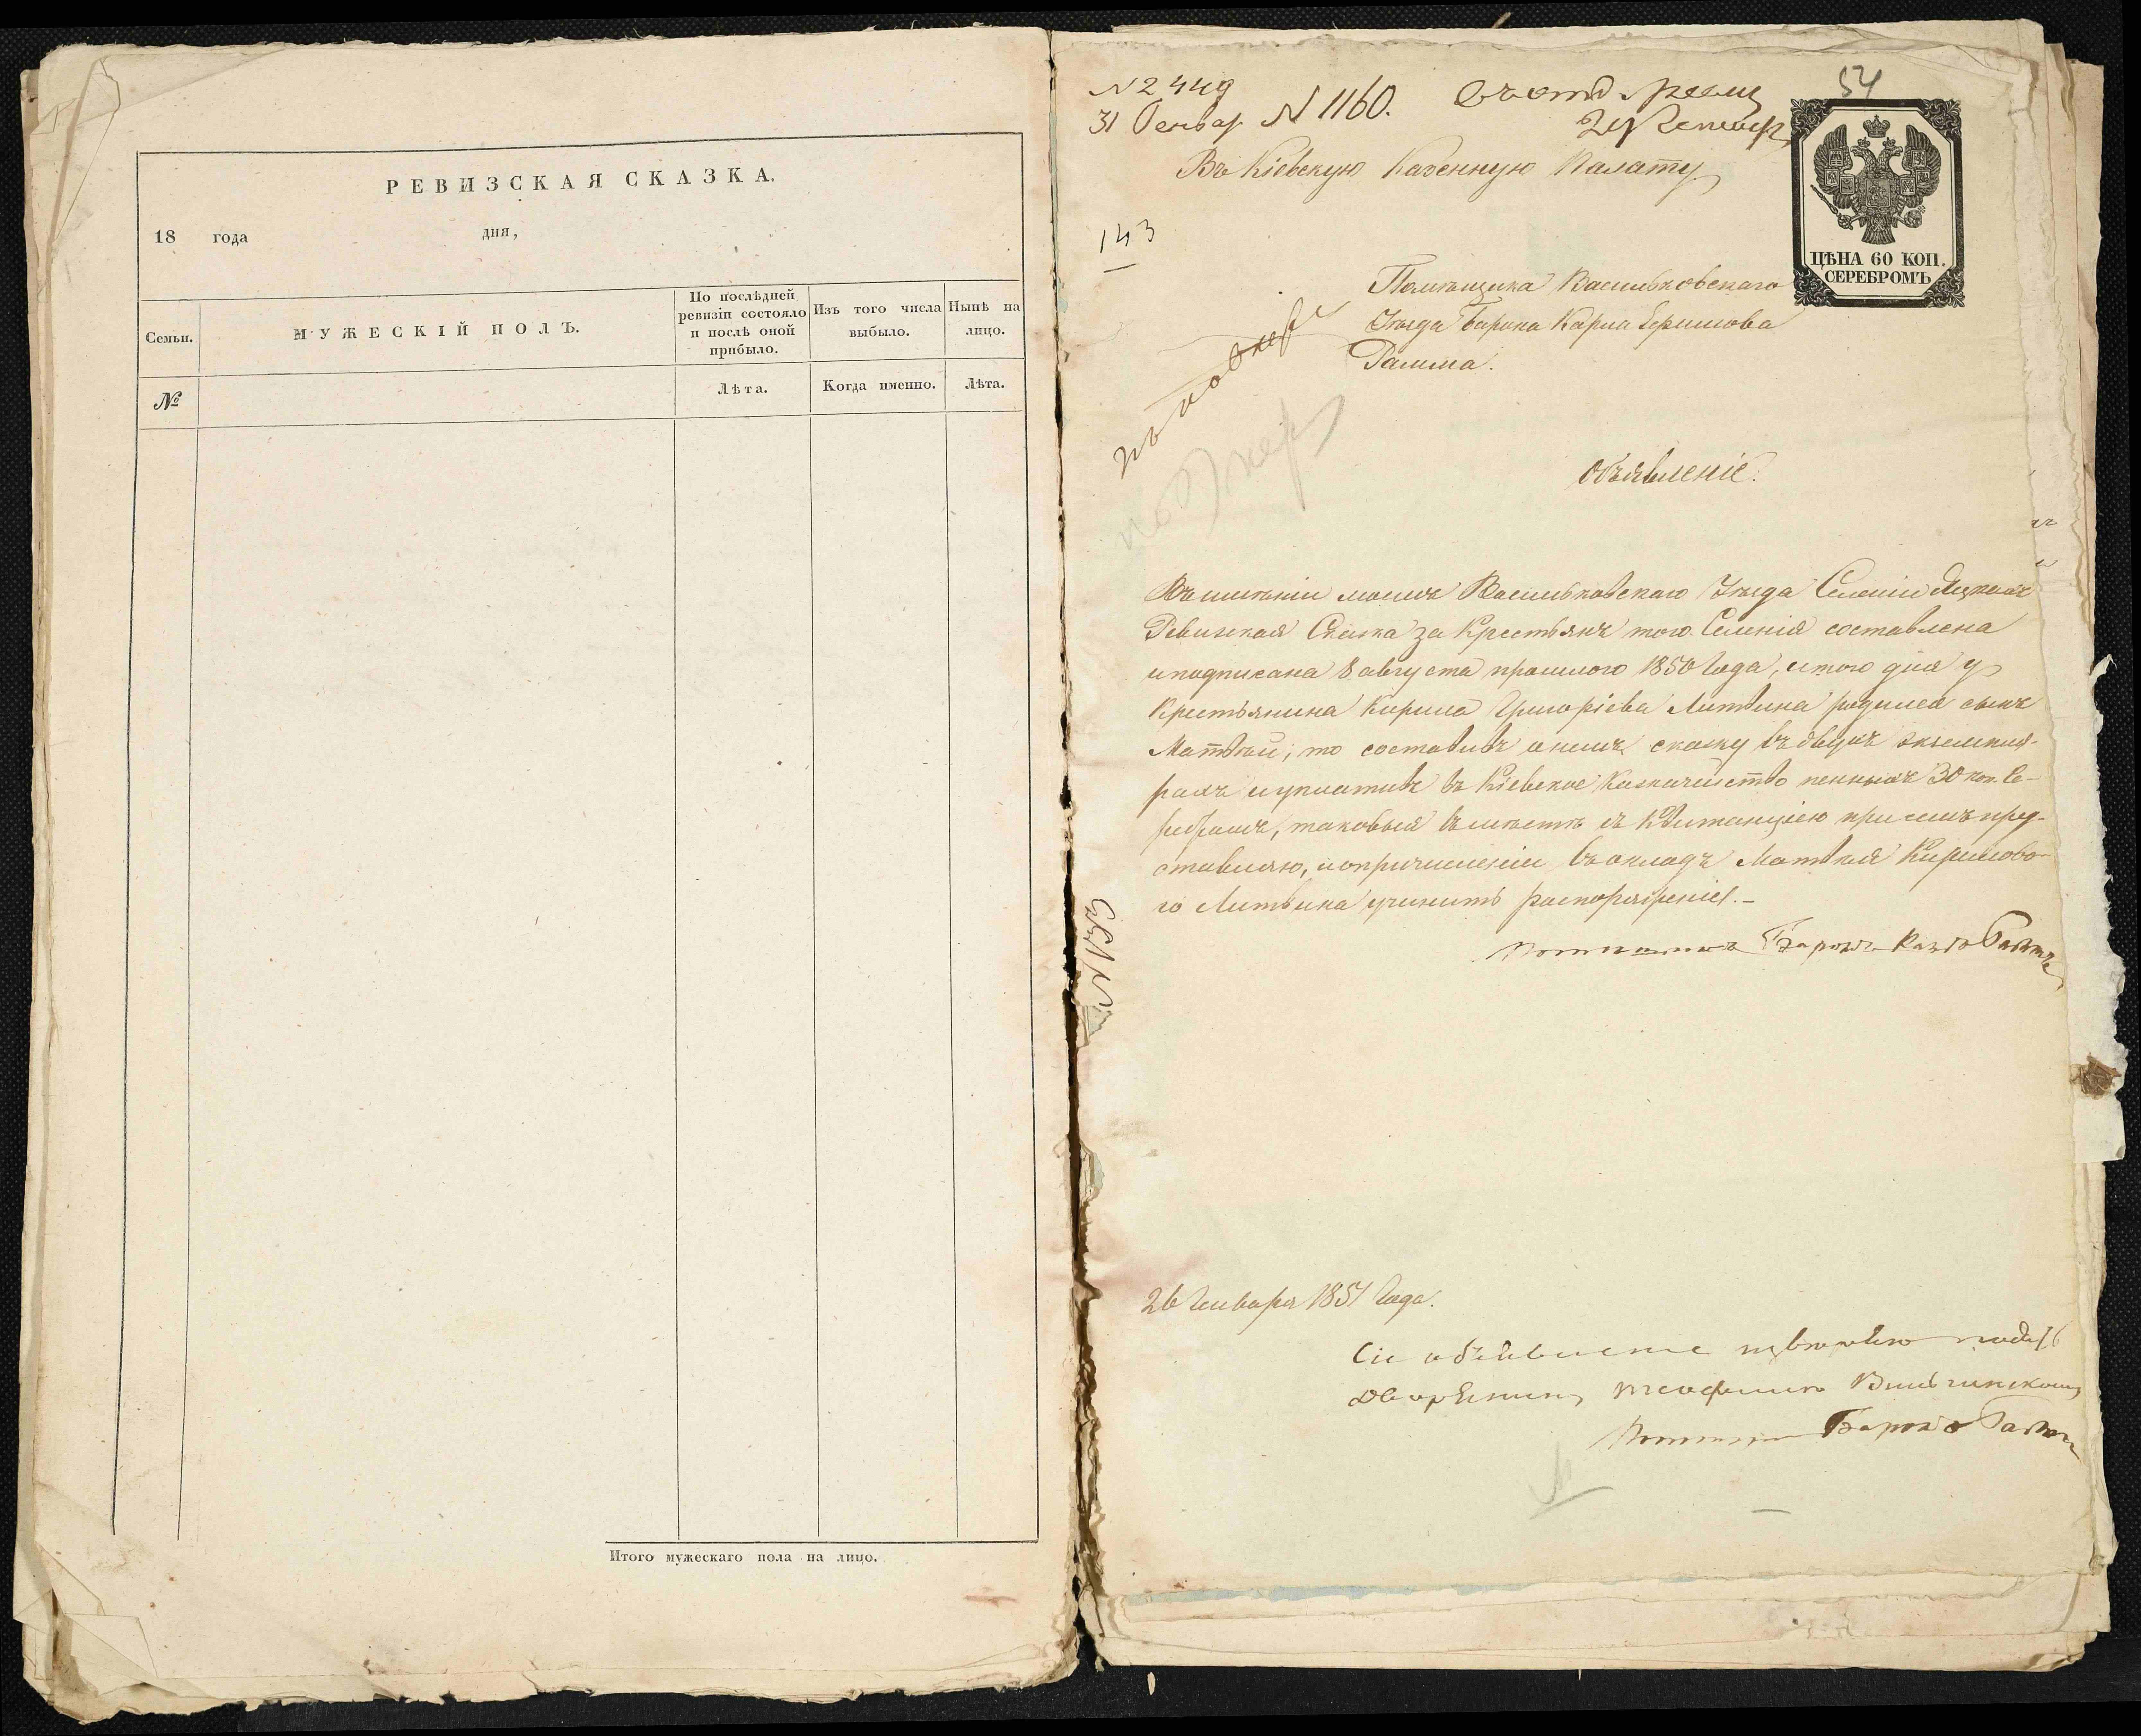 РЕВИЗСКАЯ СКАЗКА.
18 года дня,
Семьи.
МУЖЕСКІЙ ПОЛЪ.
По послѣдней
ревизіи состояло
и послѣ оной
прибыло.
Изъ того числа
выбыло.
Нынѣ на
лицо.
№
Лѣта.
Когда именно.
Лѣта.
Итого мужескаго пола на лицо.
54
N 2449
31 Генвар N 1160.
Въ Кіевскую Казенную Палату
ЦѢНА 60 КОП.
СЕРЕБРОМЪ
143
Помѣщика Васильковскаго
Уѣзда Барона Карла
Объявленіе.
Въ имѣніи моемъ Васильковскаго Уѣзда Селеніи Яцкахъ
Ревизская Сказка за Крестьянъ того Селенія составлена
и подписана 8 августа прошлого 1850 Года, и того дня у
Крестьянина Кирила Григоріева Литвина родился сынъ
Матвѣй; то составивъ о немъ сказку въ двухъ экземпля-
рахъ и уплативъ въ Кіевское Казначейство пенныхъ 30 коп. Се-
ребромъ, таковыя вмѣстѣ съ Квитанціею при семъ пред-
ставляю, и о причисленіи въ окладъ Матвѣя Кирилово-
го Литвина учинить распоряженіе.-
Баронъ Карлъ
26 Генваря 1851 Года.
Сіе объявленіе
Дворянину
Баронъ